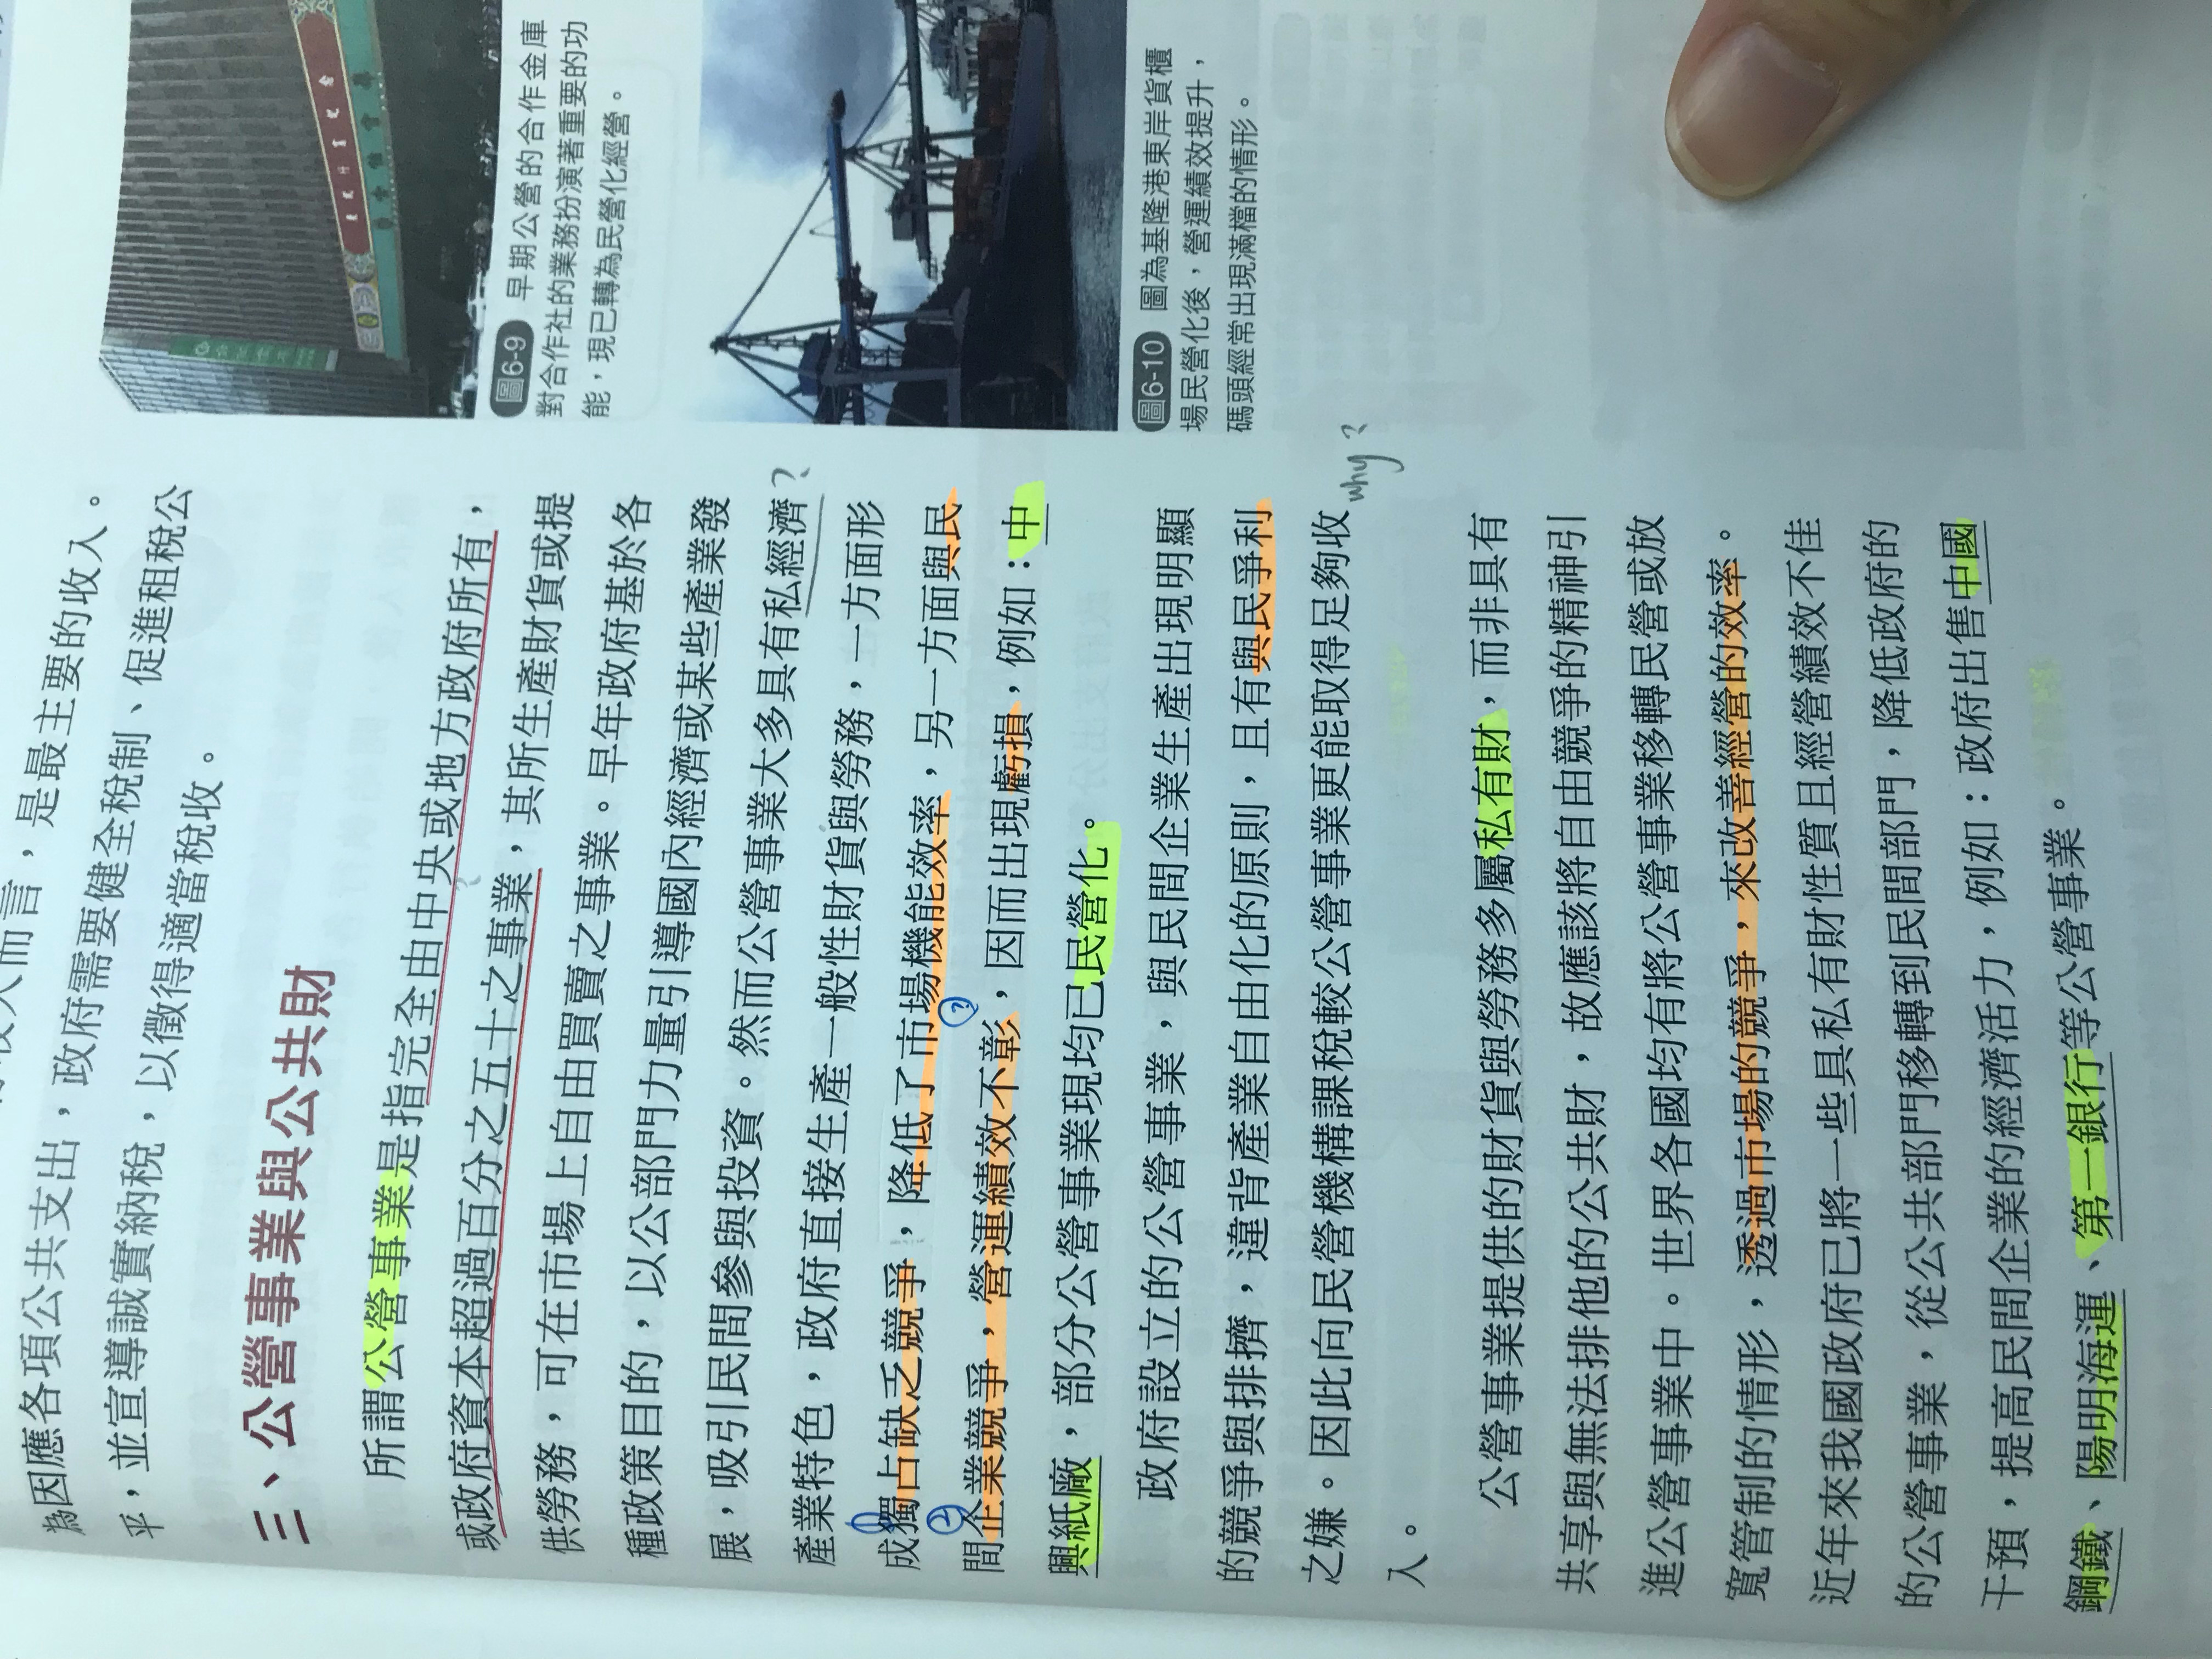 為因應各項公共支出，政府需要健全稅制、促進租稅公
平，並宣導誠實納稅，以徵得適當稅收。
而言，是最主要的收入。
三、公營事業與公共財
所謂公營事業是指完全由中央或地方政府所有，
或政府資本超過百分之五十之事業，其所生產財貨或提
供勞務，可在市場上自由買賣之事業。早年政府基於各
種政策目的，以公部門力量引導國內經濟或某些產業發
展，吸引民間參與投資。然而公營事業大多具有私經濟?
產業特色，政府直接生產一般性財貨與勞務，一方面形
成獨占缺乏競爭，降低了市場機能效率，另一方面與民
間企業競爭，營運績效不彰，因而出現虧損，例如：中
興紙廠，部分公營事業現均已民營化。
政府設立的公營事業，與民間企業生產出現明顯
的競爭與排擠，違背產業自由化的原則，且有與民爭利
之嫌。因此向民營機構課稅較公營事業更能取得足夠收
入。
why?
公營事業提供的財貨與勞務多屬私有財，而非具有
共享與無法排他的公共財，故應該將自由競爭的精神引
進公營事業中。世界各國均有將公營事業移轉民營或放
寬管制的情形，透過市場的競爭，來改善經營的效率。
近年來我國政府已將一些具私有財性質且經營績效不佳
的公營事業，從公共部門移轉到民間部門，降低政府的
干預，提高民間企業的經濟活力，例如：政府出售中國
鋼鐵、陽明海運、第一銀行等公營事業。
圖6-9 早期公營的合作金庫
對合作社的業務扮演著重要的功
能，現已轉為民營化經營。
圖6-10 圖為基隆港東岸貨櫃
場民營化後，營運績效提升，
碼頭經常出現滿檔的情形。